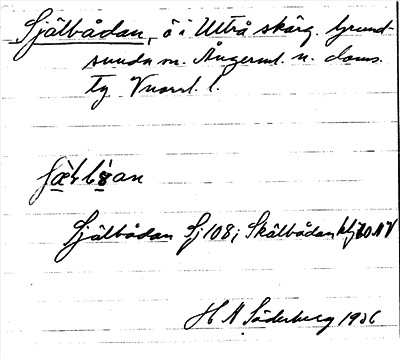 Själbådan, ö i Ultrå skärg. Grund-
sunda sn. Ångerml. n. doms.
tg Vnorrl. l.
Själbådan Sj 108; Skälbådan
H N Söderberg 1936